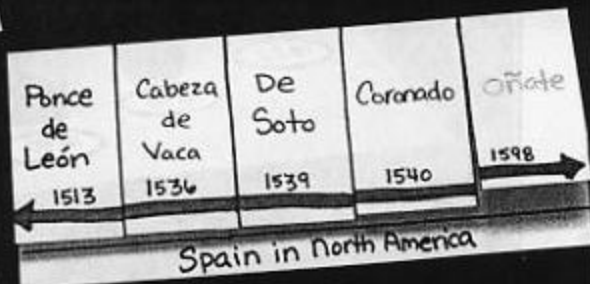 Ponce
de
León
1513
Cabeza
de
Vaca
1536
De
Soto
1539
Coronado
1540
oñate
1598
Spain in North America